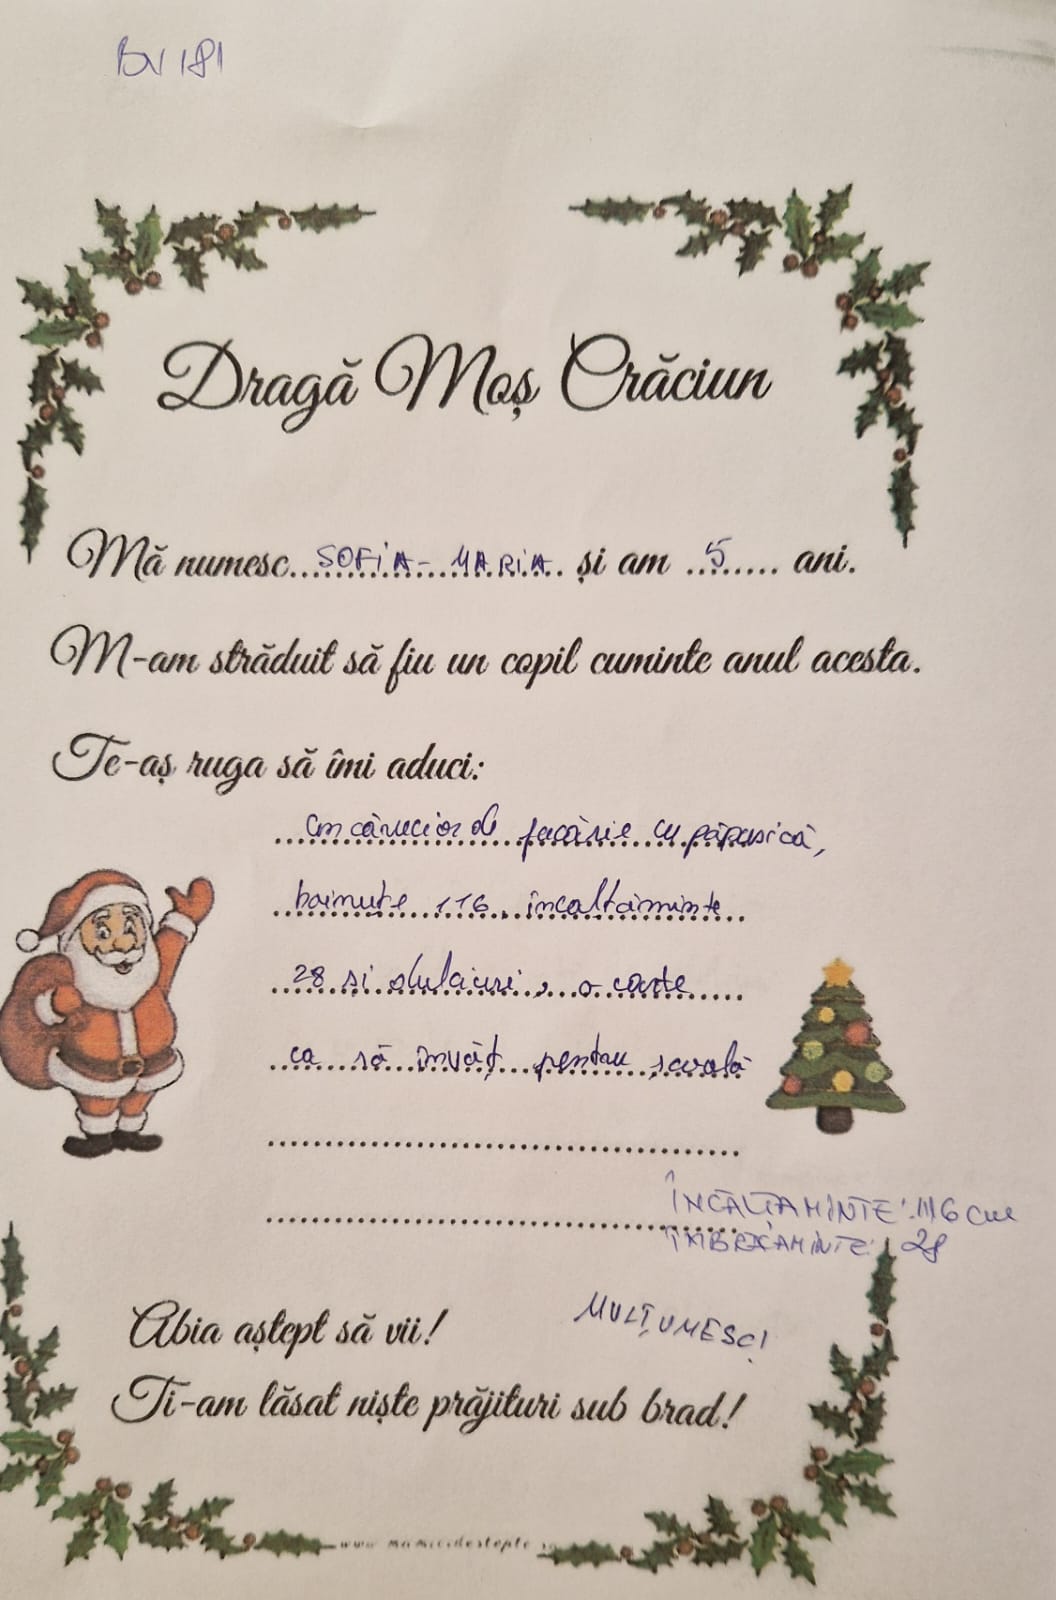 BV 181
Dragă Moș Crăciun
Mă numesc SOFIA-MARIA și am 5 ani.
M-am străduit să fiu un copil cuminte anul acesta.
Te-aș ruga să îmi aduci:
un cărucior de jucărie cu păpusică,
hainuțe 116, încaltăminte
28 și dulciuri, o carte
ca să învăț pentru scoală
ÎNCĂLȚAMINTE: 116 cm
ÎMBRĂCAMINTE: 28
Abia aștept să vii!
MULȚUMESC!
Ti-am lăsat niște prăjituri sub brad!